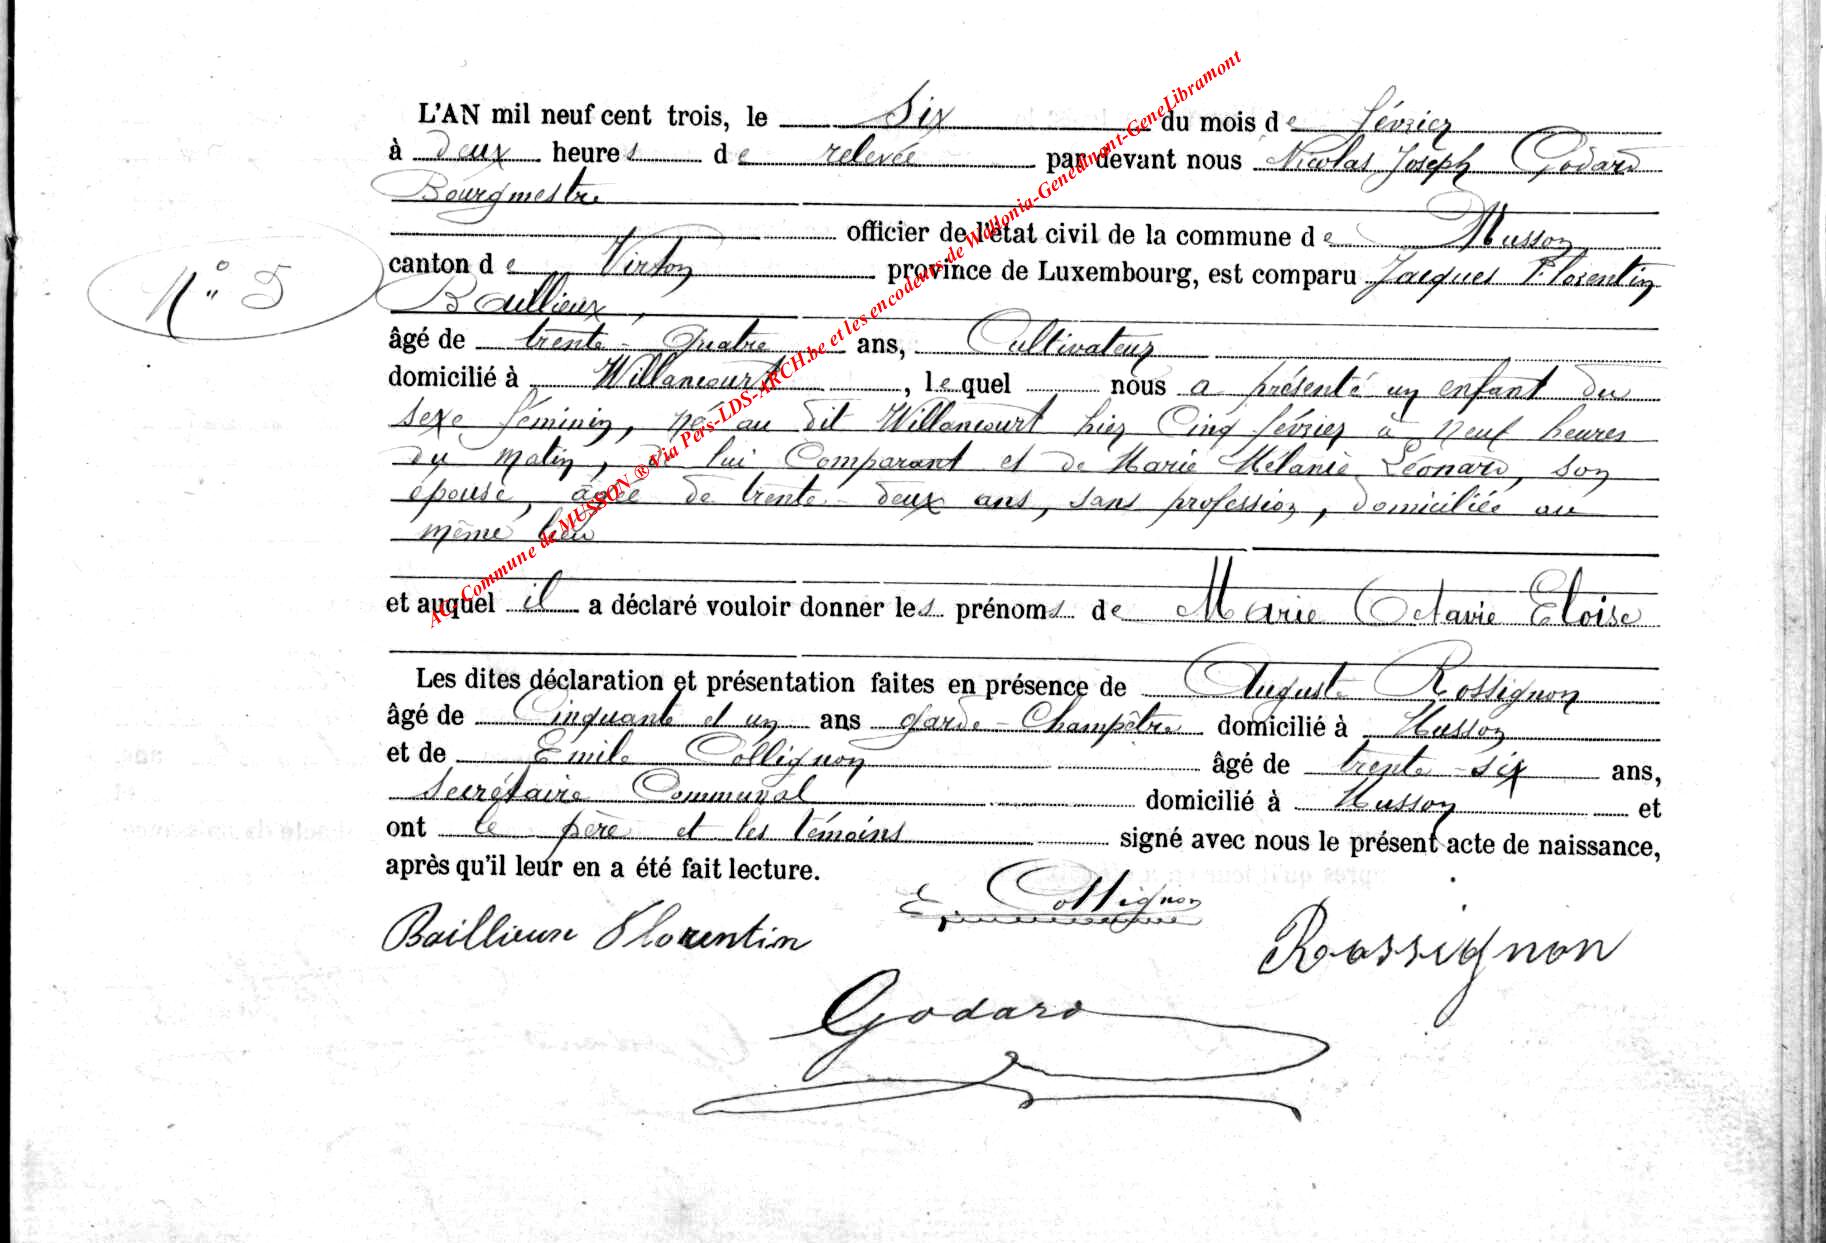 L'AN mil neuf cent trois, le Six du mois de février
à deux heures de relevée par devant nous Nicolas Joseph Godard
Bourgmestre
officier de l'état civil de la commune de Musson
N° 5
canton de Virton province de Luxembourg, est comparu Jacques Florentin
Baillieux,
âgé de trente-quatre ans, Cultivateur
domicilié à Willancourt, lequel nous a présenté un enfant du
sexe féminin, né au dit Willancourt hier Cinq février à neuf heures
du matin, de lui Comparant et de Marie Mélanie Léonard, son
épouse, âgée de trente-deux ans, sans profession, domiciliée au
même lieu
et auquel il a déclaré vouloir donner les prénoms de Marie Octavie Eloïse
Les dites déclaration et présentation faites en présence de Auguste Rossignon
âgé de Cinquante et un ans garde-Champêtre domicilié à Musson
et de Emile Collignon âgé de trente-six ans,
Secrétaire Communal domicilié à Musson et
ont le père et les témoins signé avec nous le présent acte de naissance,
après qu'il leur en a été fait lecture.
E. Collignon
Baillieux Florentin
Rossignon
Godard
AC. Commune de MUSSON ® Via Pers-LDS-ARCH.be et les encodeurs de Wallonia-Genedinant-GeneLibramont